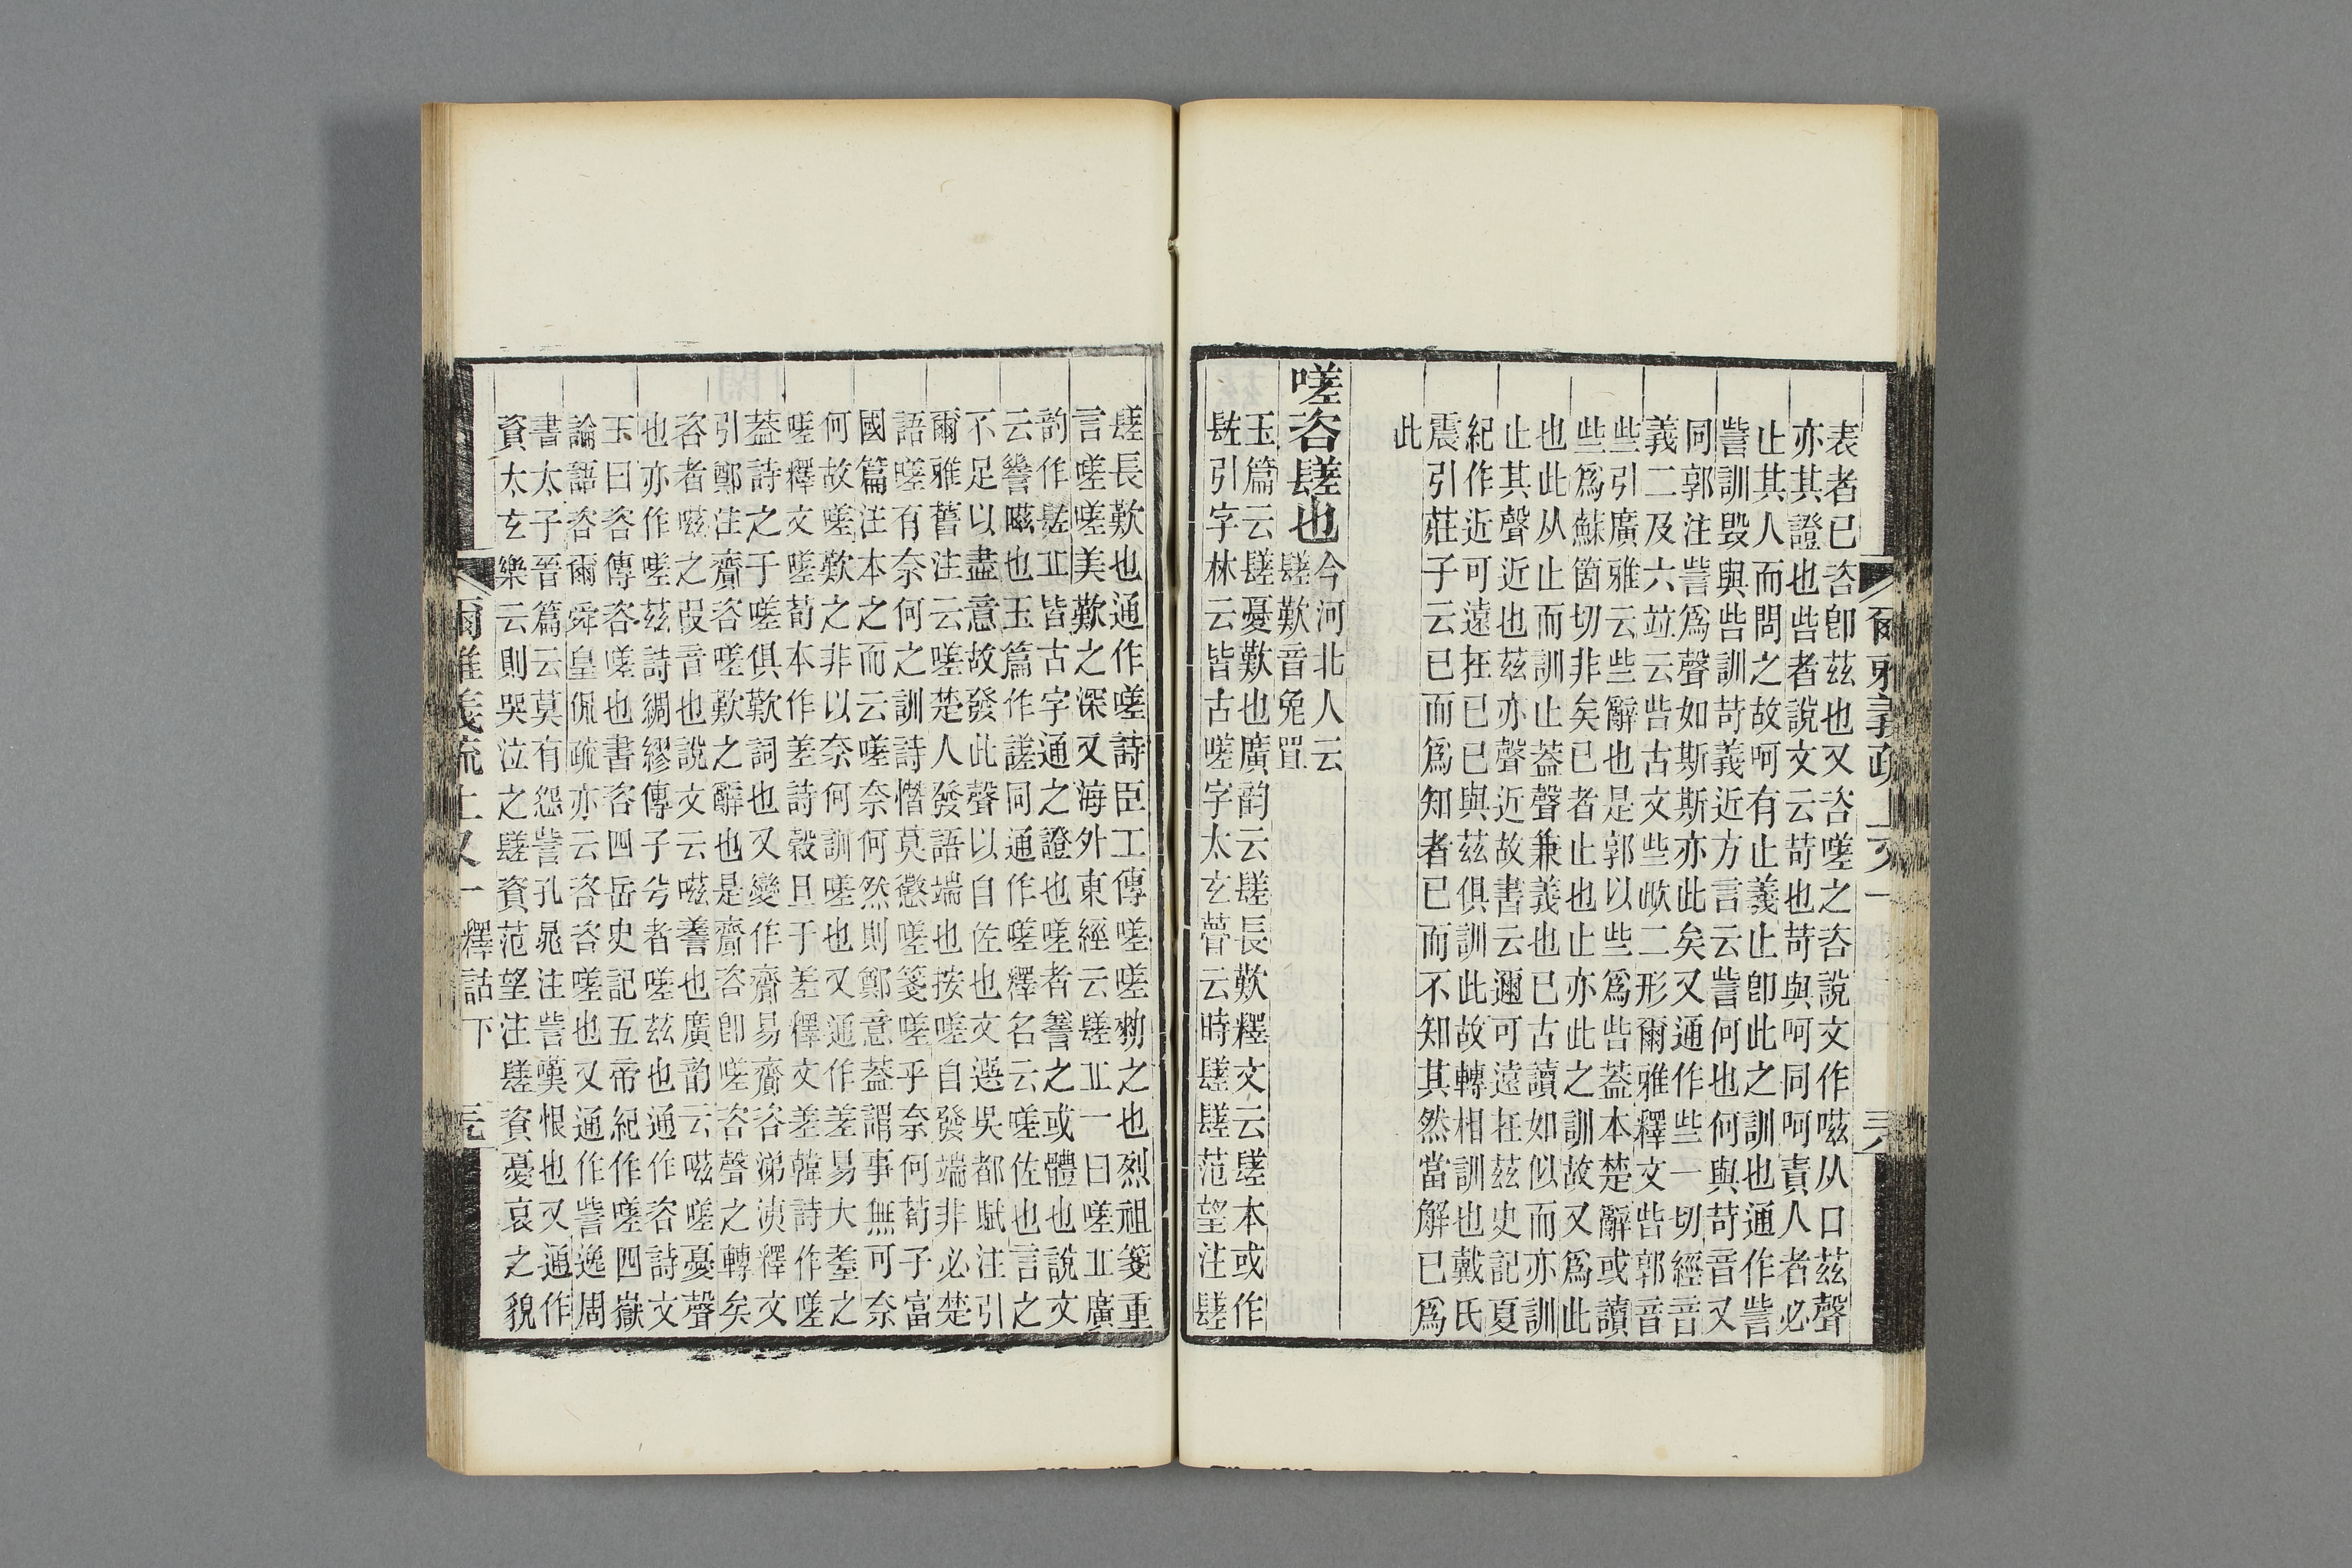 爾雅義疏上又一 三八
表者已咨卽茲也又咨嗟之咨說文作嗞从口茲聲
亦其證也呰者說文云苛也苛與呵同呵責人者必
止其人而問之故呵有止義止卽此之訓也通作訾
訾訓毀與呰訓苛義近方言云訾何也何與苛音又
同郭注訾爲聲如斯斯亦此矣又通作些一切經音
義二及六竝云呰古文些欪二形爾雅釋文呰郭音
些引廣雅云些辭也是郭以些爲呰蓋本楚辭或讀
些爲蘇箇切非矣已者止也止亦此之訓故又爲此
也此从止而訓止蓋聲兼義也已古讀如似而亦訓
止其聲近也茲亦聲近故書云邇可遠在茲史記夏
紀作近可遠在已已與茲俱訓此故轉相訓也戴氏
震引莊子云已而爲知者已而不知其然當解已爲
此
嗟咨𨲠也
今河北人云
𨲠歎音兔罝
玉篇云𨲠憂歎也廣韵云𨲠長歎釋文云𨲠本或作
𨲠引字林云皆古嗟字太玄瞢云時𨲠𨲠范望注𨲠
𨲠長歎也通作嗟詩臣工傳嗟嗟勑之也烈祖箋重
言嗟嗟美歎之深又海外東經云𨲠丘一曰嗟丘廣
韵作𨲠丘皆古字通之證也嗟者𧪜之或體也說文
云𧪜嗞也玉篇作謯同通作嗟釋名云嗟佐也言之
不足以盡意故發此聲以自佐也文選吳都賦注引
爾雅舊注云嗟楚人發語端也按嗟自發端非必楚
語嗟有奈何之訓詩憯莫懲嗟箋嗟乎奈何荀子富
國篇注本之而云嗟奈何然則鄭意蓋謂事無可奈
何故嗟歎之非以奈何訓嗟也又通作差易大耋之
嗟釋文嗟荀本作差詩穀旦于差釋文差韓詩作嗟
蓋詩之于嗟俱歎詞也又變作齎易齎咨涕洟釋文
引鄭注齎咨嗟歎之辭也是齎咨卽嗟咨聲之轉矣
咨者嗞之叚音也說文云嗞𧪜也廣韵云嗞嗟憂聲
也亦作嗟茲詩綢繆傳子兮者嗟茲也通作咨詩文
王曰咨傳咨嗟也書咨四岳史記五帝紀作嗟四嶽
論語咨爾舜皇侃疏亦云咨咨嗟也又通作訾逸周
書太子晉篇云莫有怨訾孔晁注訾嘆恨也又通作
資太玄樂云則哭泣之𨲠資范望注𨲠資憂哀之貌
爾雅義疏上又一 釋詁下 三九